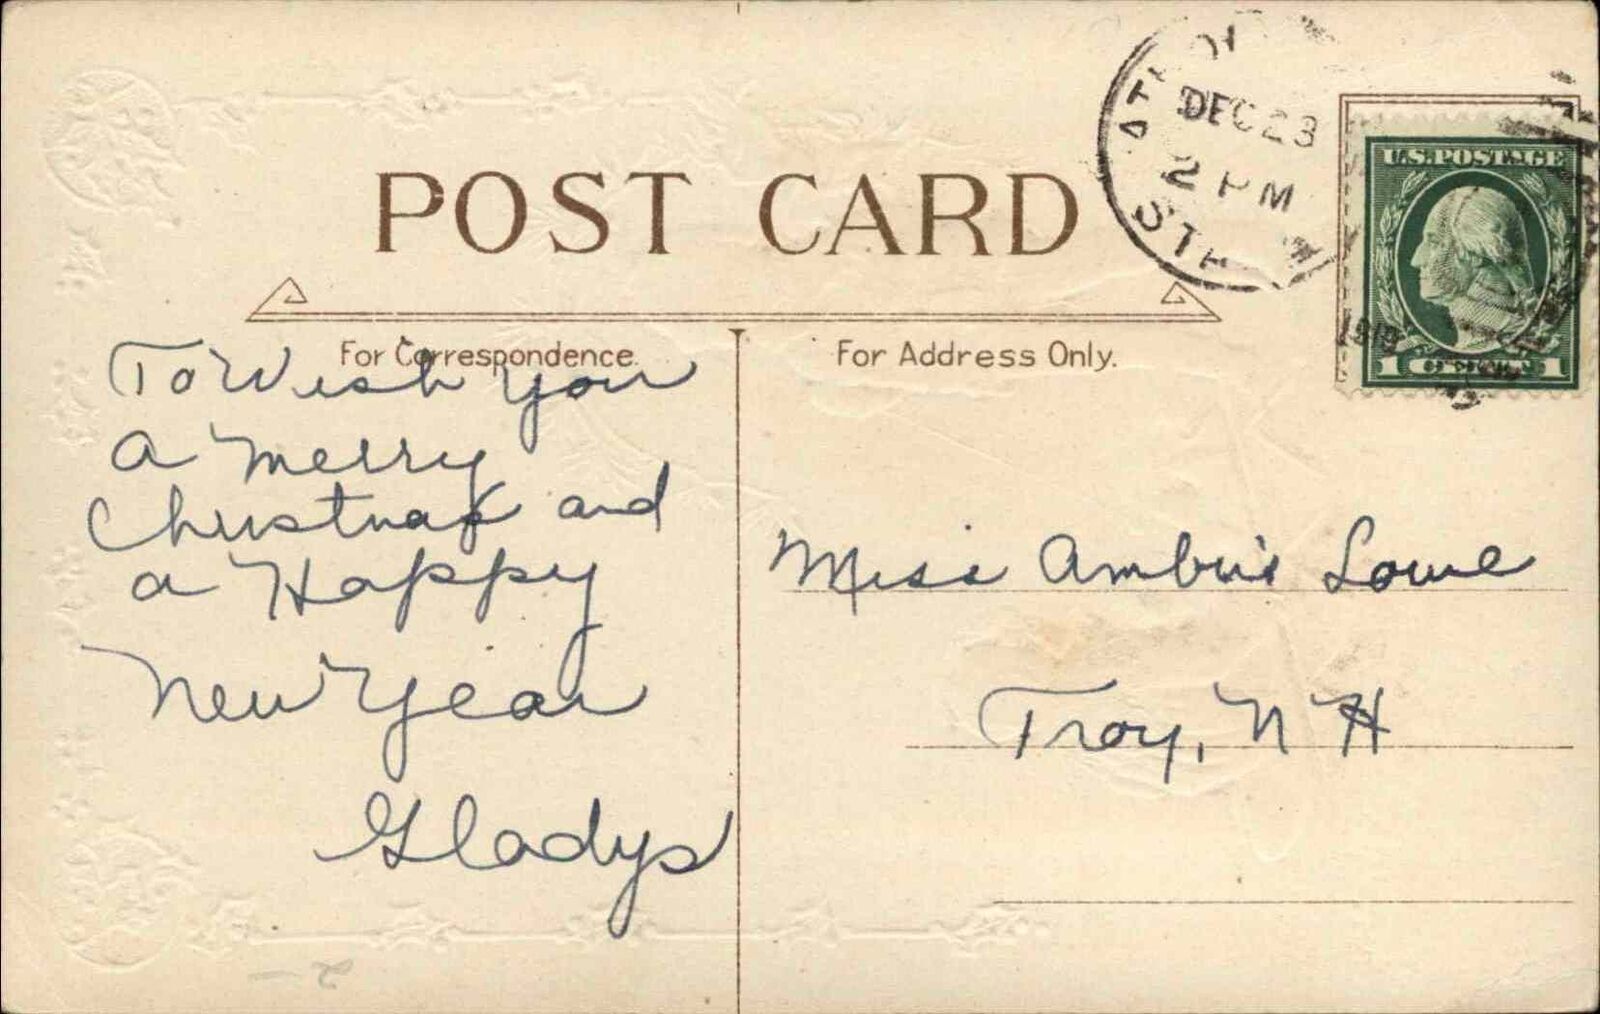 POST CARD
DEC 23
2 PM
U.S. POSTAGE
1 1
For Correspondence.
For Address Only.
To Wish you
a Merry
Christmas and
a Happy
New Year
Gladys
Miss Lowe
Troy, N H